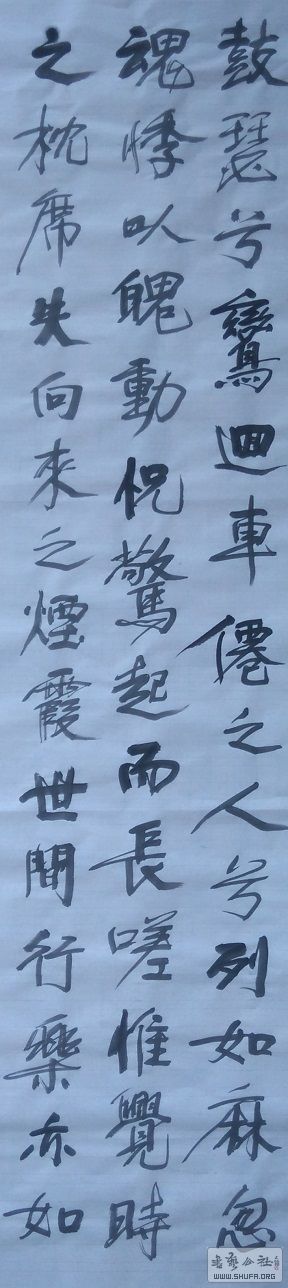 鼓瑟兮鸞迴車僊之人兮列如麻忽
魂悸以魄動怳驚起而長嗟惟覺時
之枕席失向來之煙霞世間行樂亦如
WWW.SHUFA.ORG